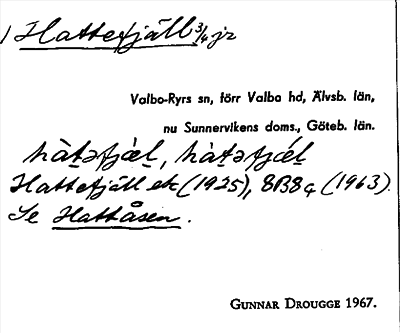 1 Hattefjäll 3/4 jr
Valbo-Ryrs sn, förr Valbo hd, Älvsb. län,
nu Sunnervikens doms., Göteb. län.
hàt̠əfjæ̀l̠, hàt̠əfjǽl̠
Hattefjäll ek (1925), 8B8g (1963).
Se Hattåsen.
GUNNAR DROUGGE 1967.